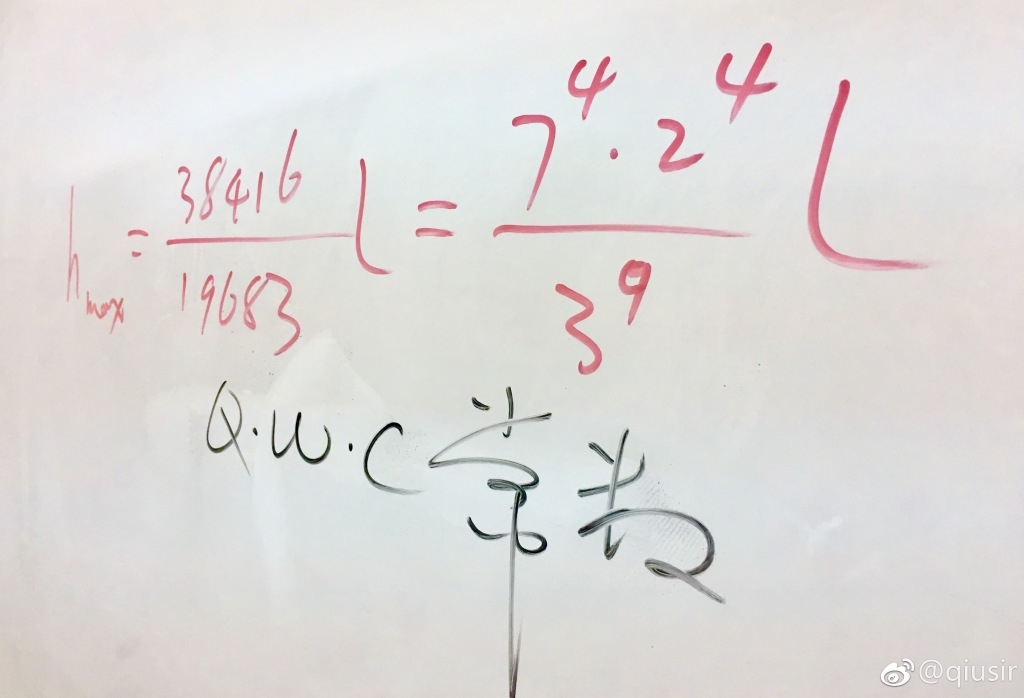 h_max = 38416/19683 l = 7^4·2^4/3^9 l
Q.W.C 常数
@qiusir